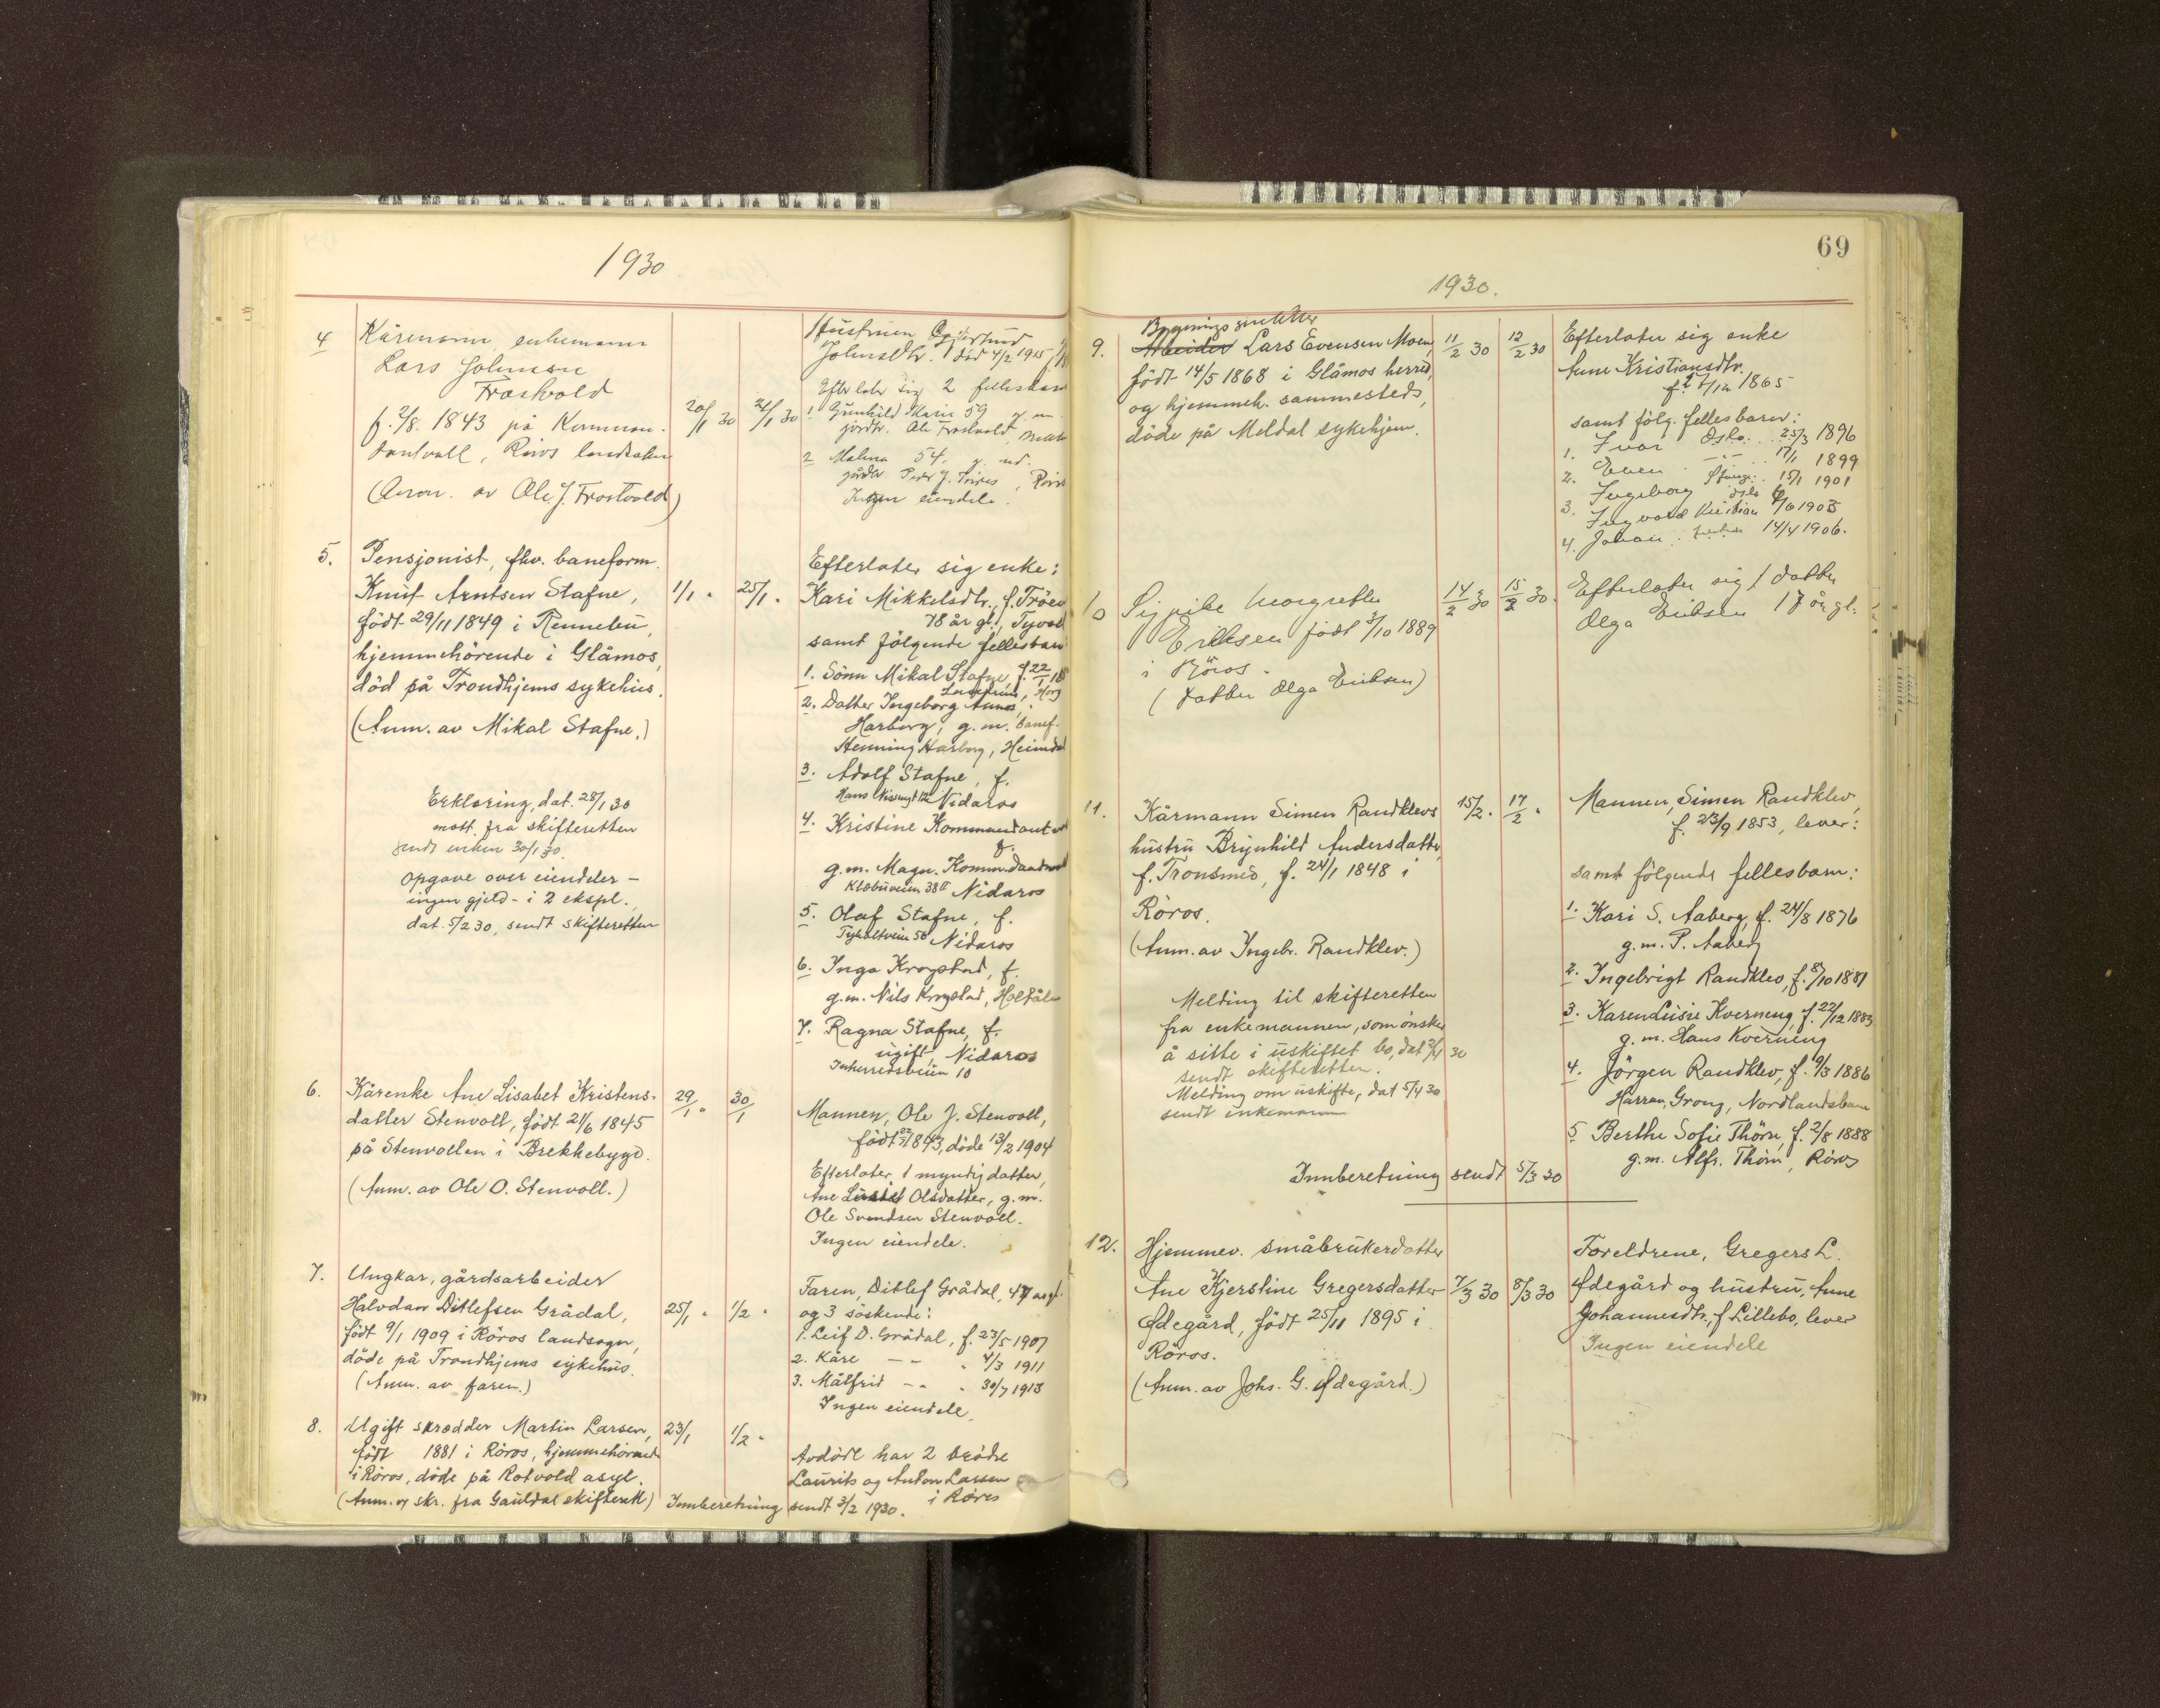 1930
4 Kårmann, enkemann
Lars Johnsen
Trøstvold
f. 2/8. 1843 på Kommandantvoll, Röros landsokn
(Anm. av Ole J. Trostvold)
20/1 30 21/1 30
Hustruen
Johnsdtr. død 4/2 1915
Efterlater sig 2 fellesbarn
1. Gunhild Marie 59 g. m.
jordbr. Ole Trostvold
2 Malena 54. g. m.
gårdbr. Peder J.
Ingen eiendele.
5. Pensjonist, fhv. baneform.
Knut Arntsen Stafne,
født 29/11 1849 i Rennebu,
hjemmehörende i Glåmos,
död på Trondhjems sykehus.
(Anm. av Mikal Stafne.)
1/1 " 25/1 "
Efterlater sig enke:
Kari Mikkelsdtr., f. Tröen
78 år gl., Tyvold
samt følgende fellesbarn
1. Sönn Mikal Stafne, f. 22/1 18
2. Datter Ingeborg Anna
Harborg, g. m. banef.
Henning Harborg, Heimdal
3. Adolf Stafne, f.
Nidaros
4. Kristine Kommandantvold
f.
g.m. Magn. Kommandantvold
Klæbuveien 38 II Nidaros
5. Olaf Stafne, f.
Tyholtveien 50 Nidaros
6. Inga Krogstad, f.
g.m. Nils Krogstad, Holtålen
7. Ragna Stafne, f.
ugift, Nidaros
Innherredsveien 10
Erklæring, dat. 28/1 30
mott. fra skifteretten
sendt enken 30/1 30.
Opgave over eiendeler -
ingen gjeld - i 2 ekspl.
dat. 5/2 30, sendt skifteretten
6. Kårenke Ane Lisabet Kristens-
datter Stenvoll, født 21/6 1845
på Stenvollen i Brekkebygd.
(Anm. av Ole O. Stenvoll.)
29/1 " 30/1
Mannen, Ole J. Stenvoll,
født 1843, döde 13/2 1904
Efterlater 1 myndig datter,
Ane Lisabet Olsdatter, g.m.
Ole Svendsen Stenvoll.
Ingen eiendele.
7. Ungkar, gårdsarbeider
Halvdan Ditlefsen Grådal,
født 9/1 1909 i Röros landsogn,
döde på Trondhjems sykehus.
(Anm. av faren.)
25/1 " 1/2 "
Faren, Ditlef Grådal, 47 år gl.
og 3 söskende:
1. Leif D. Grådal, f. 23/5 1907
2. Kåre - - " 4/3 1911
3. Målfrid - - " 30/7 1913
Ingen eiendele.
8. Ugift skredder Martin Larsen,
født 1881 i Röros, hjemmehörende
i Röros, döde på Rotvold asyl.
(Anm. og skr. fra Gauldal skifterett)
23/1 1/2 "
Avdöde har 2 brödre
Laurits og Anton Larsen
i Röros
Innberetning sendt 3/2 1930.
69
1930.
9. Bygningssnekker
Arbeider Lars Evensen Moen,
født 14/5 1868 i Glåmos herred,
og hjemmeh. sammesteds,
döde på Meldal sykehjem.
11/2 30 12/2 30
Efterlater sig enke
Anne Kristiansdtr.
1865
samt fölg. fellesbarn:
1. Ivar Oslo. 25/3 1896
2. Even - - 17/1 1899
Ingeborg 15/1 1901
3. Ingvald Kristian 1903
4. Johan 14/4 1906.
10 Sypike Margrethe
Eriksen født 3/10 1889
i Röros.
(Datter Olga Eriksen)
14/2 30 15/2 30.
Efterlater sig 1 datter
Olga Eriksen 17 år gl.
11. Kårmann Simen Randklevs
hustru Brynhild Andersdatter,
f. Tronsmed, f. 24/1 1848 i
Röros.
(Anm. av Ingebr. Randklev.)
15/2 " 17/2 "
Mannen, Simen Randklev,
f. 23/9 1853, lever:
samt følgende fellesbarn:
1. Kari S. Aaberg, f. 24/8 1876
g.m. P. Aaberg
2. Ingebrigt Randklev, f. 8/10 1881
3. Karen Lusie Kverneng, f. 22/12 1883
g.m. Hans Kverneng
4. Jörgen Randklev, f. 9/3 1886
Harran, Grong, Nordlandsbanen
5 Berthe Sofie Thörn, f. 2/8 1888
g.m. Alfr. Thörn, Röros
Melding til skifteretten
fra enkemannen, som önsker
å sitte i uskiftet bo, dat 2/4 30
sendt skifteretten.
Melding om uskifte, dat 5/4 30
sendt enkemann
Innberetning sendt 5/3 30
12. Hjemmev. småbrukerdatter
Ane Kjerstine Gregersdatter
Ødegård, født 25/11 1895 i
Röros.
(Anm. av Johs. G. Ødegård.)
7/3 30 8/3 30
Foreldrene, Gregers L.
Ødegård og hustru, Anne
Johannesdtr., f. Lillebo, lever
Ingen eiendele